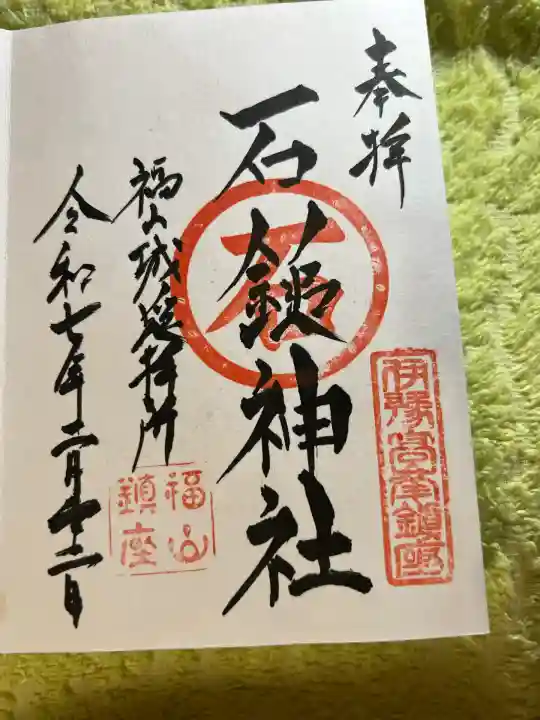 奉拝
伊豫高峯鎮座
石鎚神社
石
福山城遥拝所
福山
鎮座
令和七年二月十二日